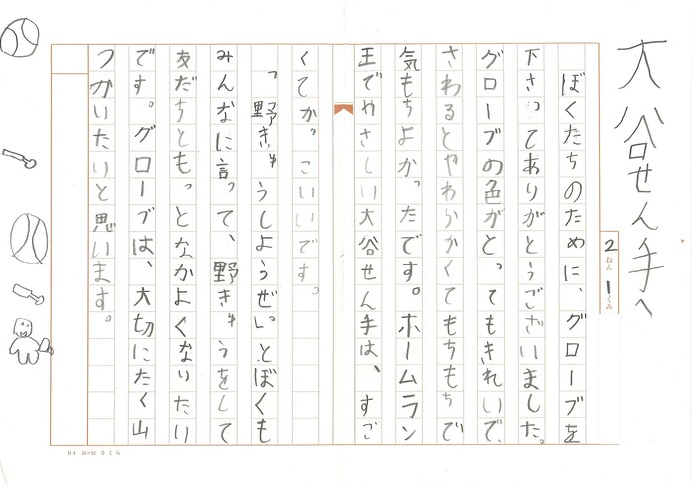 大谷せん手へ
2ねん1くみ
ぼくたちのために、グローブを
下さってありがとうございました。
グローブの色がとってもきれいで、
さわるとやわらかくてもちもちで
気もちよかったです。ホームラン
王でやさしい大谷せん手は、すご
くてかっこいいです。
「野きゅうしようぜ。」とぼくも
みんなに言って、野きゅうをして
友だちともっとなかよくなりたい
です。グローブは、大切にたく山
つかいたいと思います。
B4 さくら